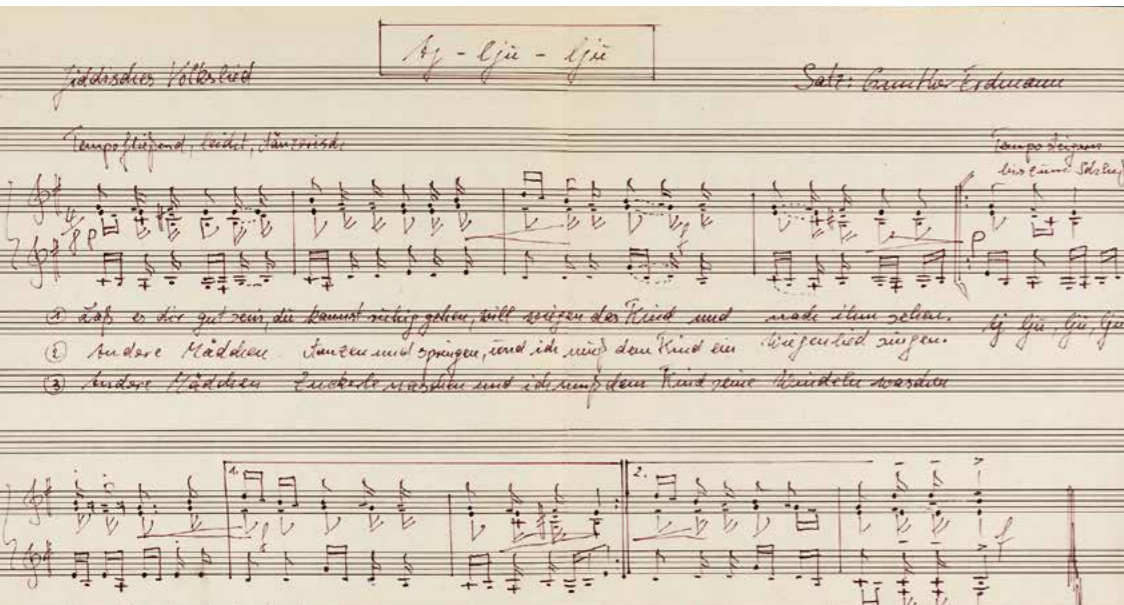 Aj - lju - lju
Jiddisches Volkslied
Satz: Gunther Erdmann
Tempo fließend, leicht, tänzerisch
Tempo steigern
bis zum Schluß
p
f
p
① Laß es dir gut sein, du kannst ruhig gehen, will wiegen das Kind und nach ihm sehen. Aj lju, lju, lju
② Andere Mädchen tanzen und springen, und ich muß dem Kind ein Wiegenlied singen.
③ Andere Mädchen Zuckerle naschen und ich muß dem Kind seine Windeln waschen
1.
2.
f